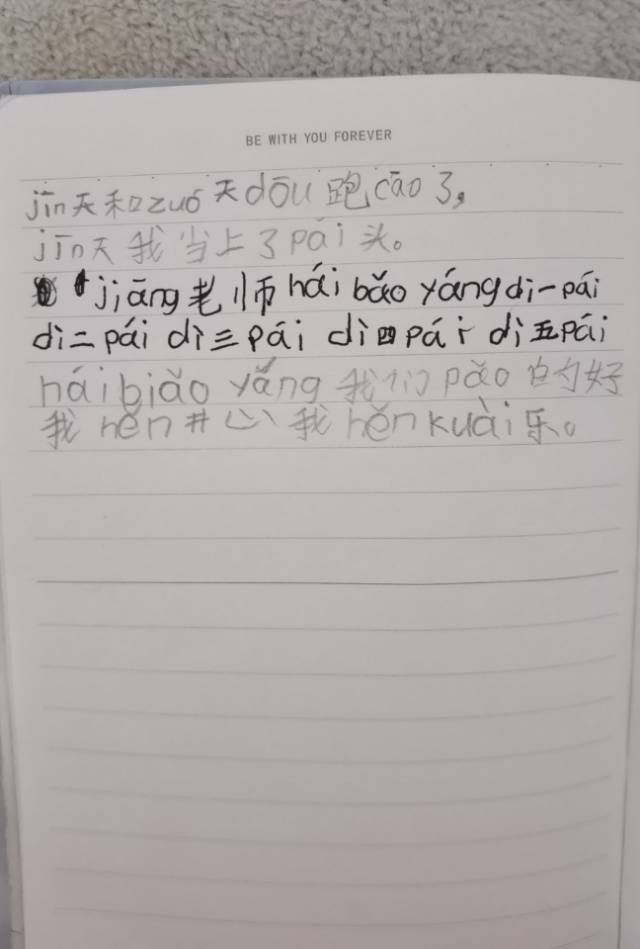 BE WITH YOU FOREVER
jīn天和zuó天dōu跑cāo了,
jīn天我当上了pái头。
jiāng老师hái bǎo yáng dì一pái
dì二pái dì三pái dì四pái dì五pái
hái biǎo yǎng 我们pǎo的好
我hěn开心我hěn kuài乐。